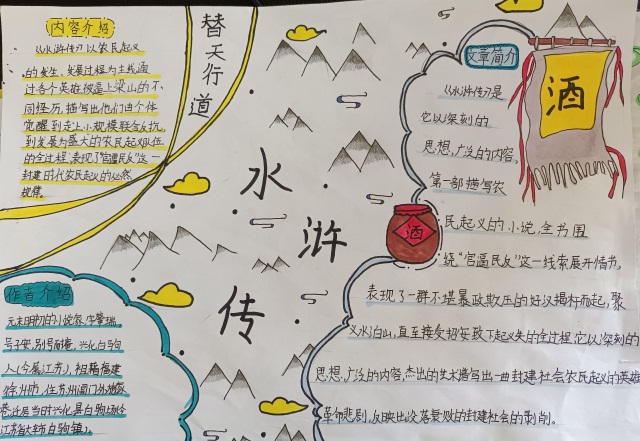 内容介绍
《水浒传》以农民起义
的发生、发展过程为主线，通
过各个英雄被逼上梁山的不
同经历，描写出他们由个体
觉醒到走上小规模联合反抗，
到发展为盛大的农民起义队伍
的全过程，表现了“官逼民反”这一
封建时代农民起义的必然
规律。
替天行道
水浒传
作者介绍
元末明初的小说家，
号子安，别号耐庵，兴化白驹
人（今属江苏），祖籍福建
住苏州阊门外
当时兴化县白驹场
白驹镇）。
文章简介
酒
《水浒传》是
它以深刻的
思想，广泛的内容，
第一部描写农
民起义的小说，全书围
绕“官逼民反”这一线索展开情节，
酒
表现了一群不堪暴政欺压的好汉揭竿而起，聚
义水泊山，直至接受招安致下起义失的全过程，它以深刻的
思想，广泛的内容，杰出的艺术描写出一曲封建社会农民起义的英雄
革命悲剧，反映出没落衰败的封建社会的